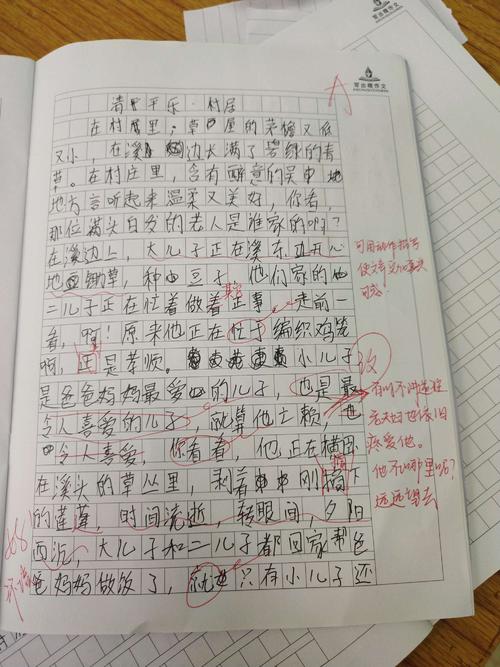 写出精作文
清平乐·村居
在村居里,草屋的茅檐又低
又小,在溪边长满了碧绿的青
草。在村庄里,含有醉意的吴中地
地方言听起来温柔又美好,你看,
那位满头白发的老人是谁家的啊?
在溪边上,大儿子正在溪东边开心
地锄草,种豆子,他们家的
二儿子正在忙着做着正事,走前一
看,啊!原来他正在忙于编织鸡笼
啊,真是孝顺。小儿子
是爸爸妈妈最爱的儿子,也是最
令人喜爱的儿子,就算他亡赖,也
令人喜爱,你看看,他正在横卧
在溪头的草丛里,剥着刚摘下
的莲蓬,时间流逝,转眼间,夕阳
西沉,大儿子和二儿子都回家帮爸
爸妈妈做饭了,就 只有小儿子还
可用动作描写
使文章更加
疼爱他。
他在哪里呢?
远远望去